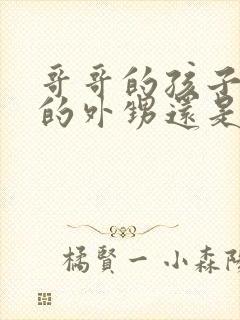 哥哥的孩子
的外甥還是
橘賢一 小森陽